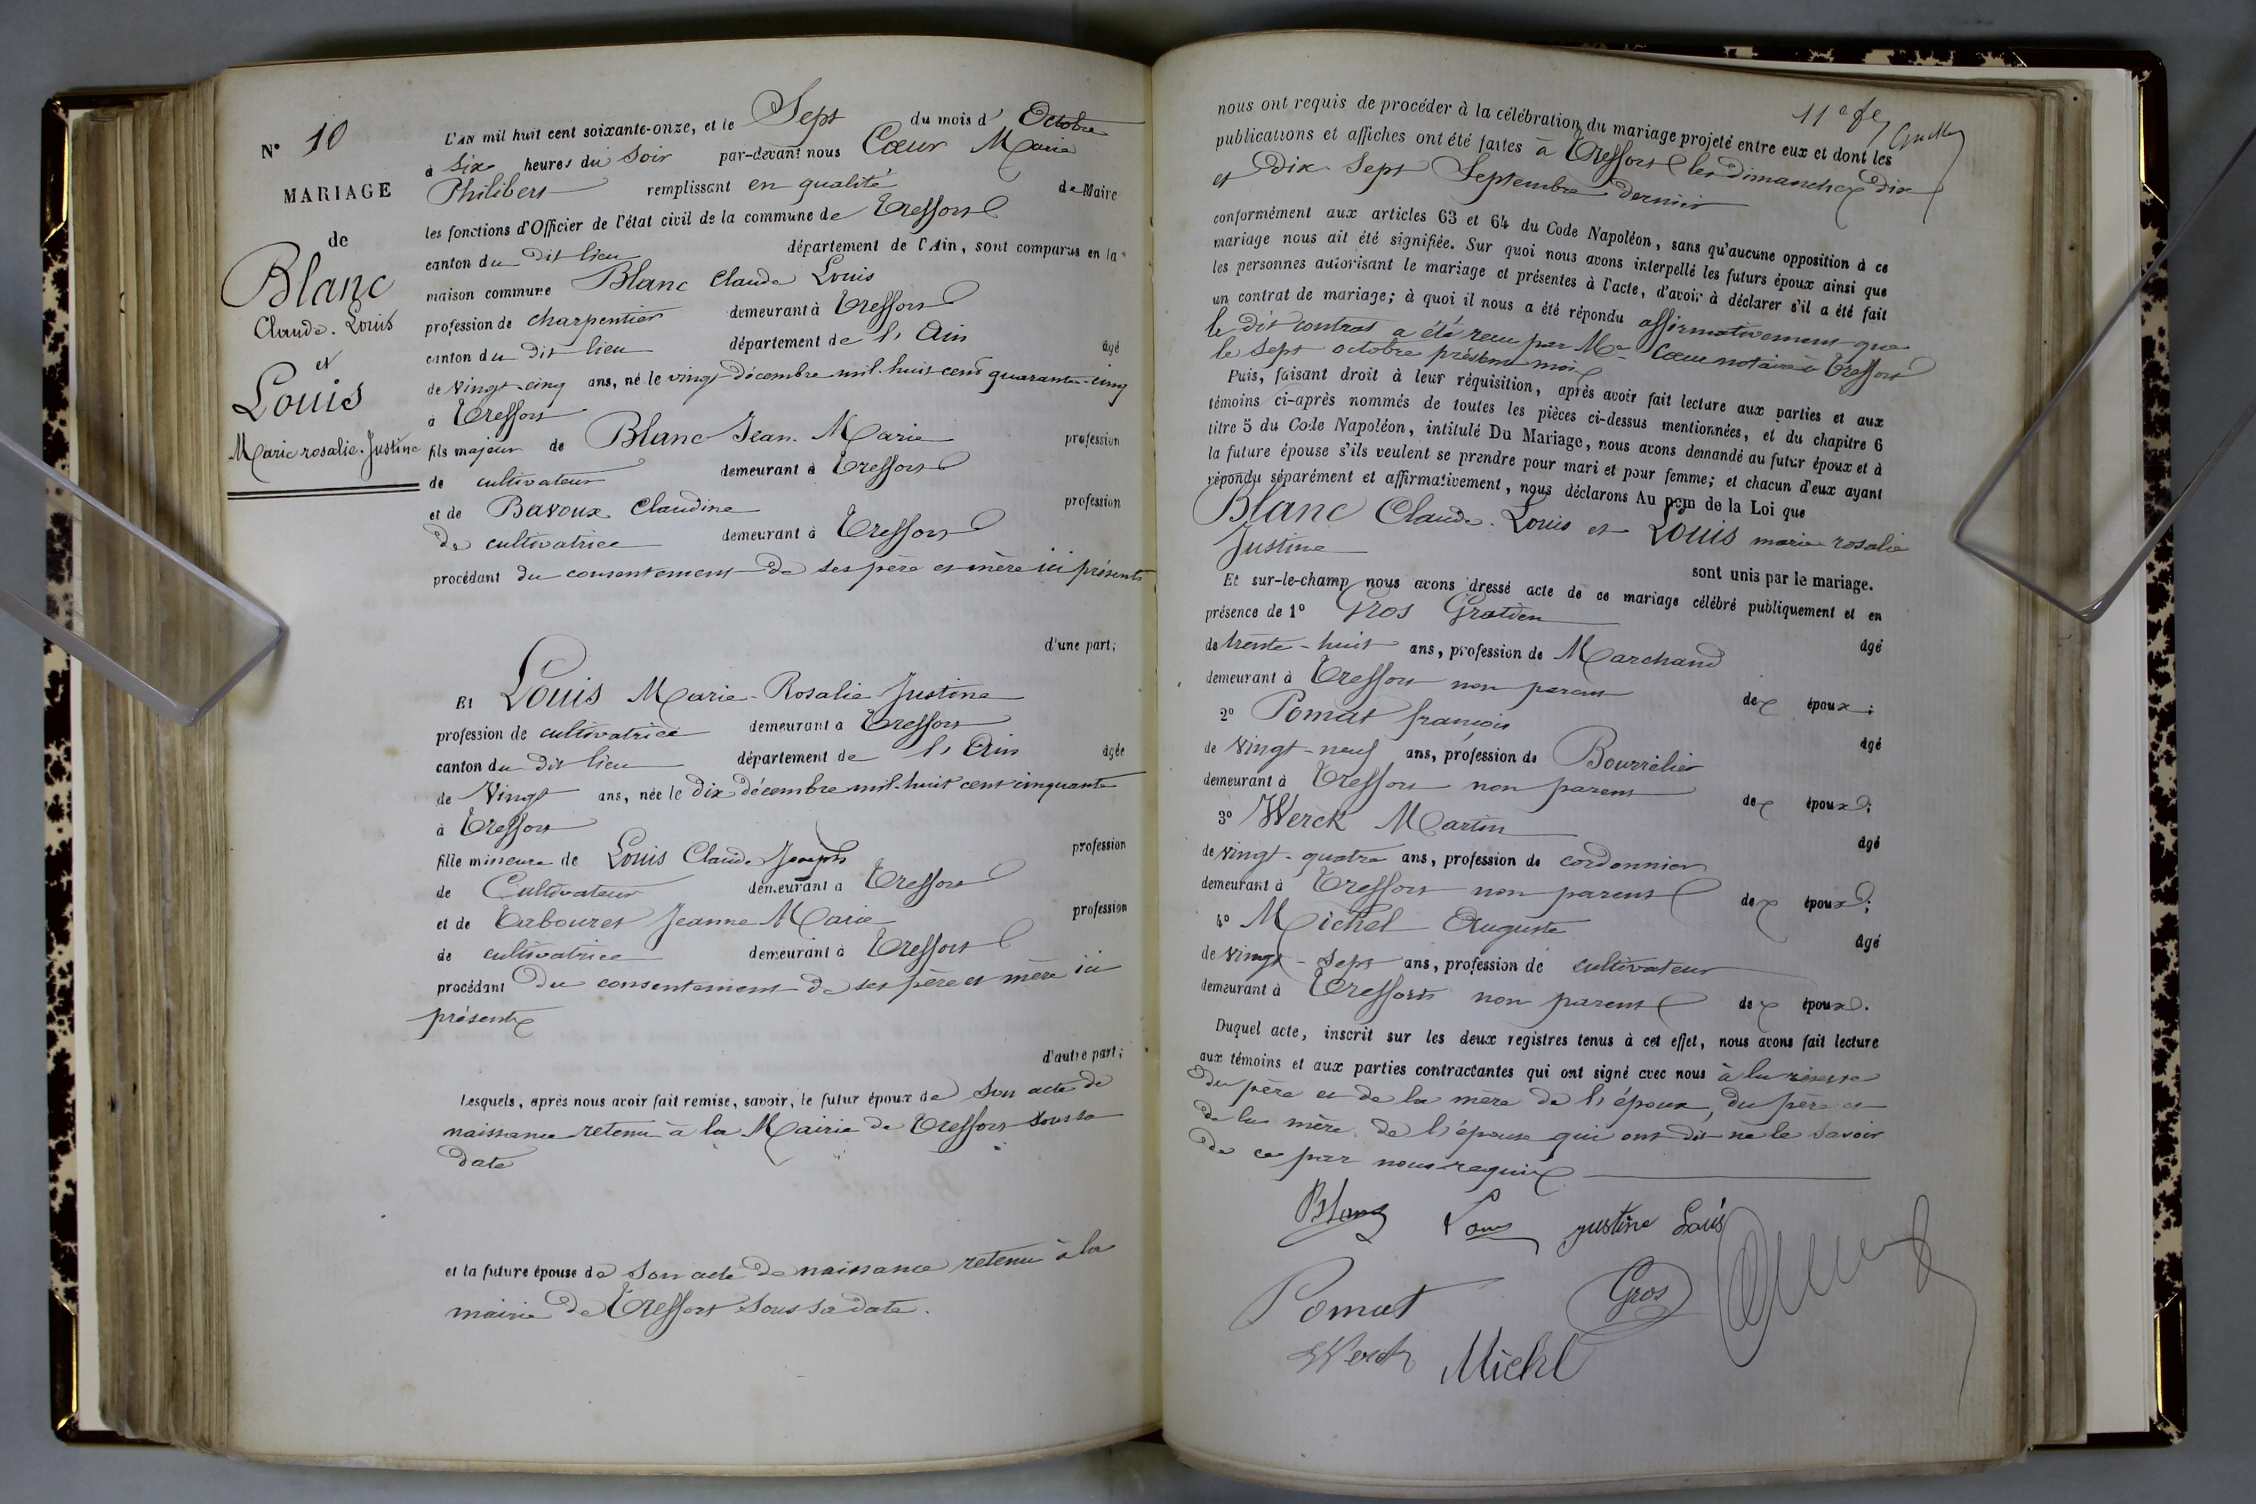 N° 10
MARIAGE
de
Blanc
Claude. Louis
et
Louis
Marie rosalie. Justine
L'AN mil huit cent soixante-onze, et le Sept du mois d' Octobre
à six heures du soir par-devant nous Cœur Marie
Philibert remplissant en qualité de Maire
les fonctions d'Officier de l'état civil de la commune de Treffort
canton du dit lieu département de l'Ain, sont comparus en la
maison commune Blanc Claude Louis
profession de charpentier demeurant à Treffort
canton du dit lieu département de l'Ain âgé
de vingt-cinq ans, né le vingt décembre mil-huit cent quarante-cinq
à Treffort
fils majeur de Blanc Jean. Marie profession
de cultivateur demeurant à Treffort
et de Bavoux Claudine profession
de cultivatrice demeurant à Treffort
procédant du consentement de ses père et mère ici présents
d'une part;
Et Louis Marie-Rosalie Justine
profession de cultivatrice demeurant à Treffort
canton du dit lieu département de l'Ain âgée
de Vingt ans, née le dix décembre mil-huit cent cinquante
à Treffort
fille mineure de Louis Claude Joseph profession
de Cultivateur demeurant à Treffort
et de Tabouret Jeanne Marie profession
de cultivatrice demeurant à Treffort
procédant du consentement de ses père et mère ici
présents
d'autre part;
Lesquels, après nous avoir fait remise, savoir, le futur époux de son acte de
naissance retenu à la Mairie de Treffort sous sa
date
et la future épouse de son acte de naissance retenu à la
mairie de Treffort sous sa date.
11e fe
nous ont requis de procéder à la célébration du mariage projeté entre eux et dont les
publications et affiches ont été faites à Treffort les dimanches dix
et dix sept Septembre dernier
conformément aux articles 63 et 64 du Code Napoléon, sans qu'aucune opposition à ce
mariage nous ait été signifiée. Sur quoi nous avons interpellé les futurs époux ainsi que
les personnes autorisant le mariage et présentes à l'acte, d'avoir à déclarer s'il a été fait
un contrat de mariage; à quoi il nous a été répondu affirmativement que
le dit contrat a été recu par Me Cœur notaire à Treffort
le sept octobre présent mois
Puis, faisant droit à leur réquisition, après avoir fait lecture aux parties et aux
témoins ci-après nommés de toutes les pièces ci-dessus mentionnées, et du chapitre 6
titre 5 du Code Napoléon, intitulé Du Mariage, nous avons demandé au futur époux et à
la future épouse s'ils veulent se prendre pour mari et pour femme; et chacun d'eux ayant
répondu séparément et affirmativement, nous déclarons Au nom de la Loi que
Blanc Claude. Louis et Louis marie rosalie
Justine
sont unis par le mariage.
Et sur-le-champ nous avons dressé acte de ce mariage célébré publiquement et en
présence de 1° Gros Gratien âgé
de trente-huit ans, profession de Marchand
demeurant à Treffort non parent des époux;
2° Pomat françois âgé
de vingt-neuf ans, profession de Bourrelier
demeurant à Treffort non parent des époux;
3° Werck Martin âgé
de vingt-quatre ans, profession de cordonnier
demeurant à Treffort non parent des époux;
4° Michel Auguste âgé
de vingt-sept ans, profession de cultivateur
demeurant à Treffort non parent des époux.
Duquel acte, inscrit sur les deux registres tenus à cet effet, nous avons fait lecture
aux témoins et aux parties contractantes qui ont signé avec nous à la réserve
du père et de la mère de l'époux, du père et
de la mère de l'épouse qui ont dit ne le savoir
de ce par nous requis
Blanc Louis justine Louis
Pomat Gros
Werck Michl